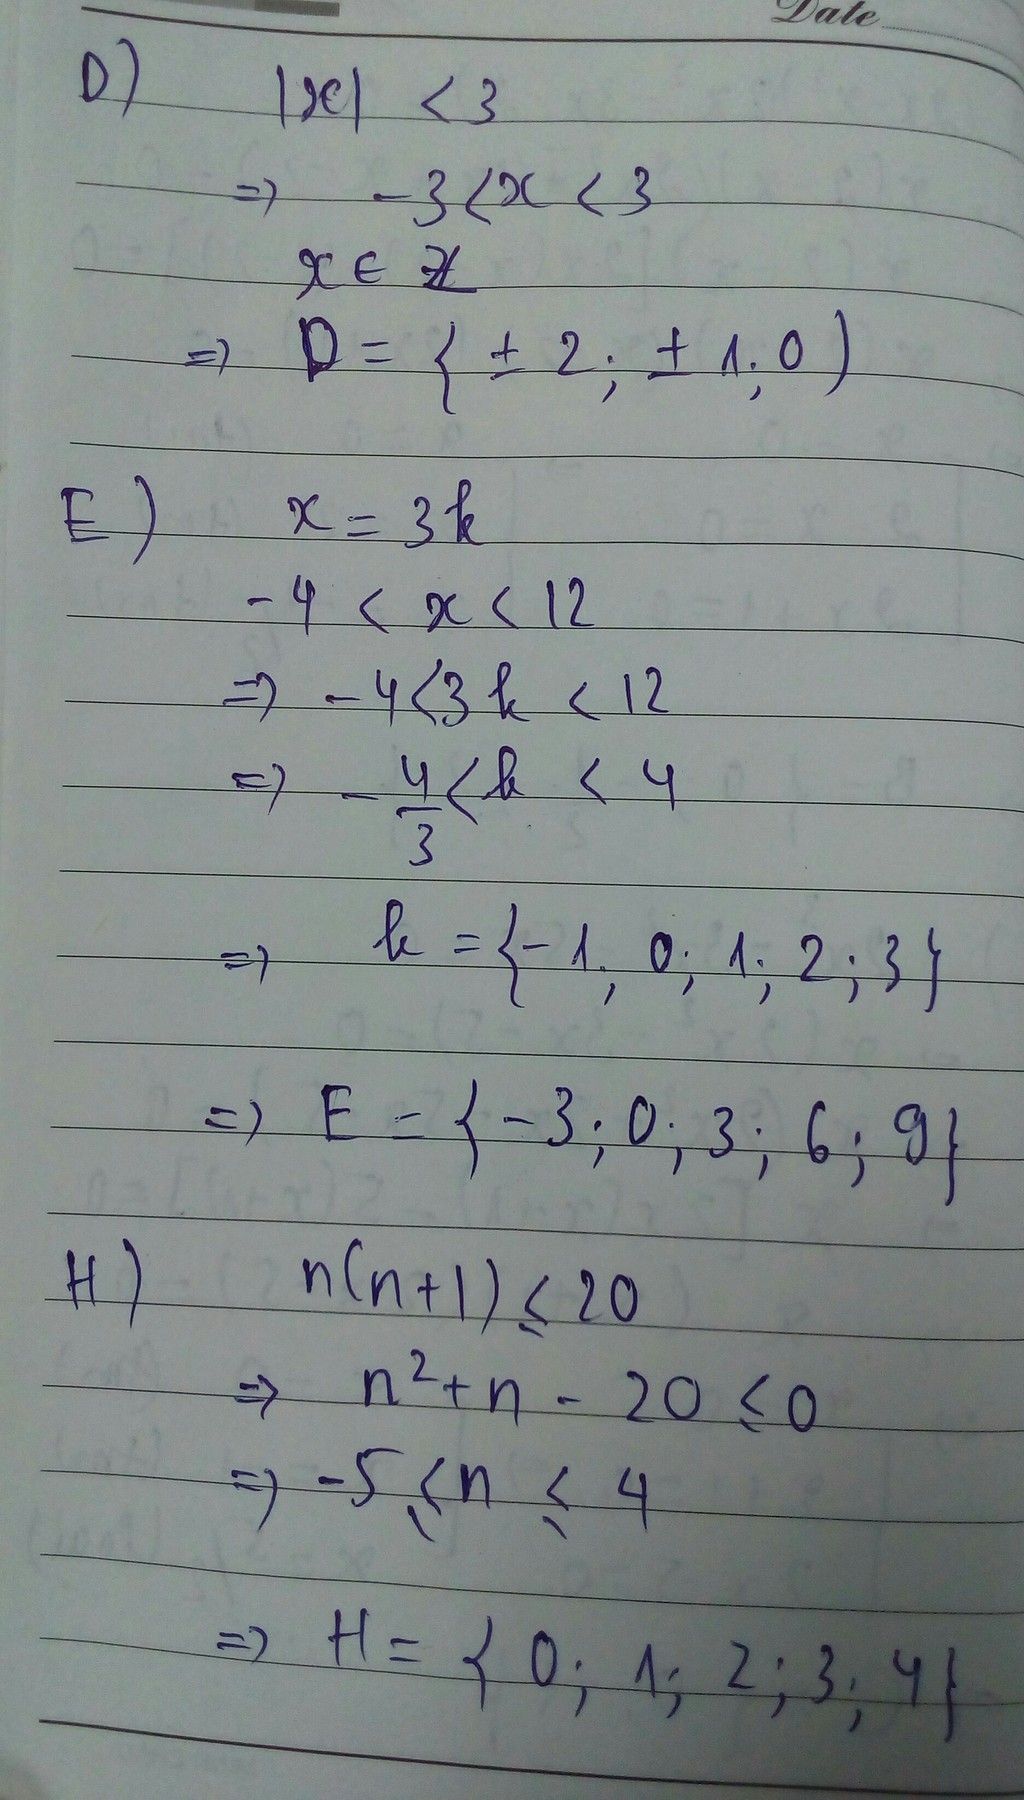 Date
D) |x| < 3
=> -3 < x < 3
x ∈ Z
=> D = { ± 2 ; ± 1 ; 0 )
E) x = 3k
-4 < x < 12
=> -4 < 3k < 12
=> -4/3 < k < 4
=> k = {-1; 0; 1; 2; 3}
=> E = {-3; 0; 3; 6; 9}
H) n(n+1) ≤ 20
=> n² + n - 20 ≤ 0
=> -5 ≤ n ≤ 4
=> H = { 0; 1; 2; 3; 4}